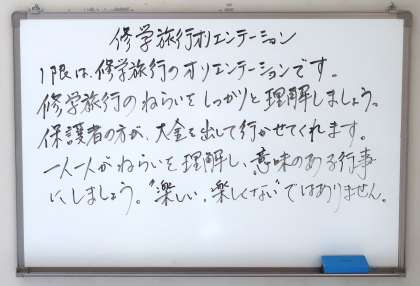 修学旅行オリエンテーション
1限は、修学旅行のオリエンテーションです。
修学旅行のねらいをしっかりと理解しましょう。
保護者の方が、大金を出して行かせてくれます。
一人一人がねらいを理解し、意味のある行事
にしましょう。"楽しい、楽しくない"ではありません。